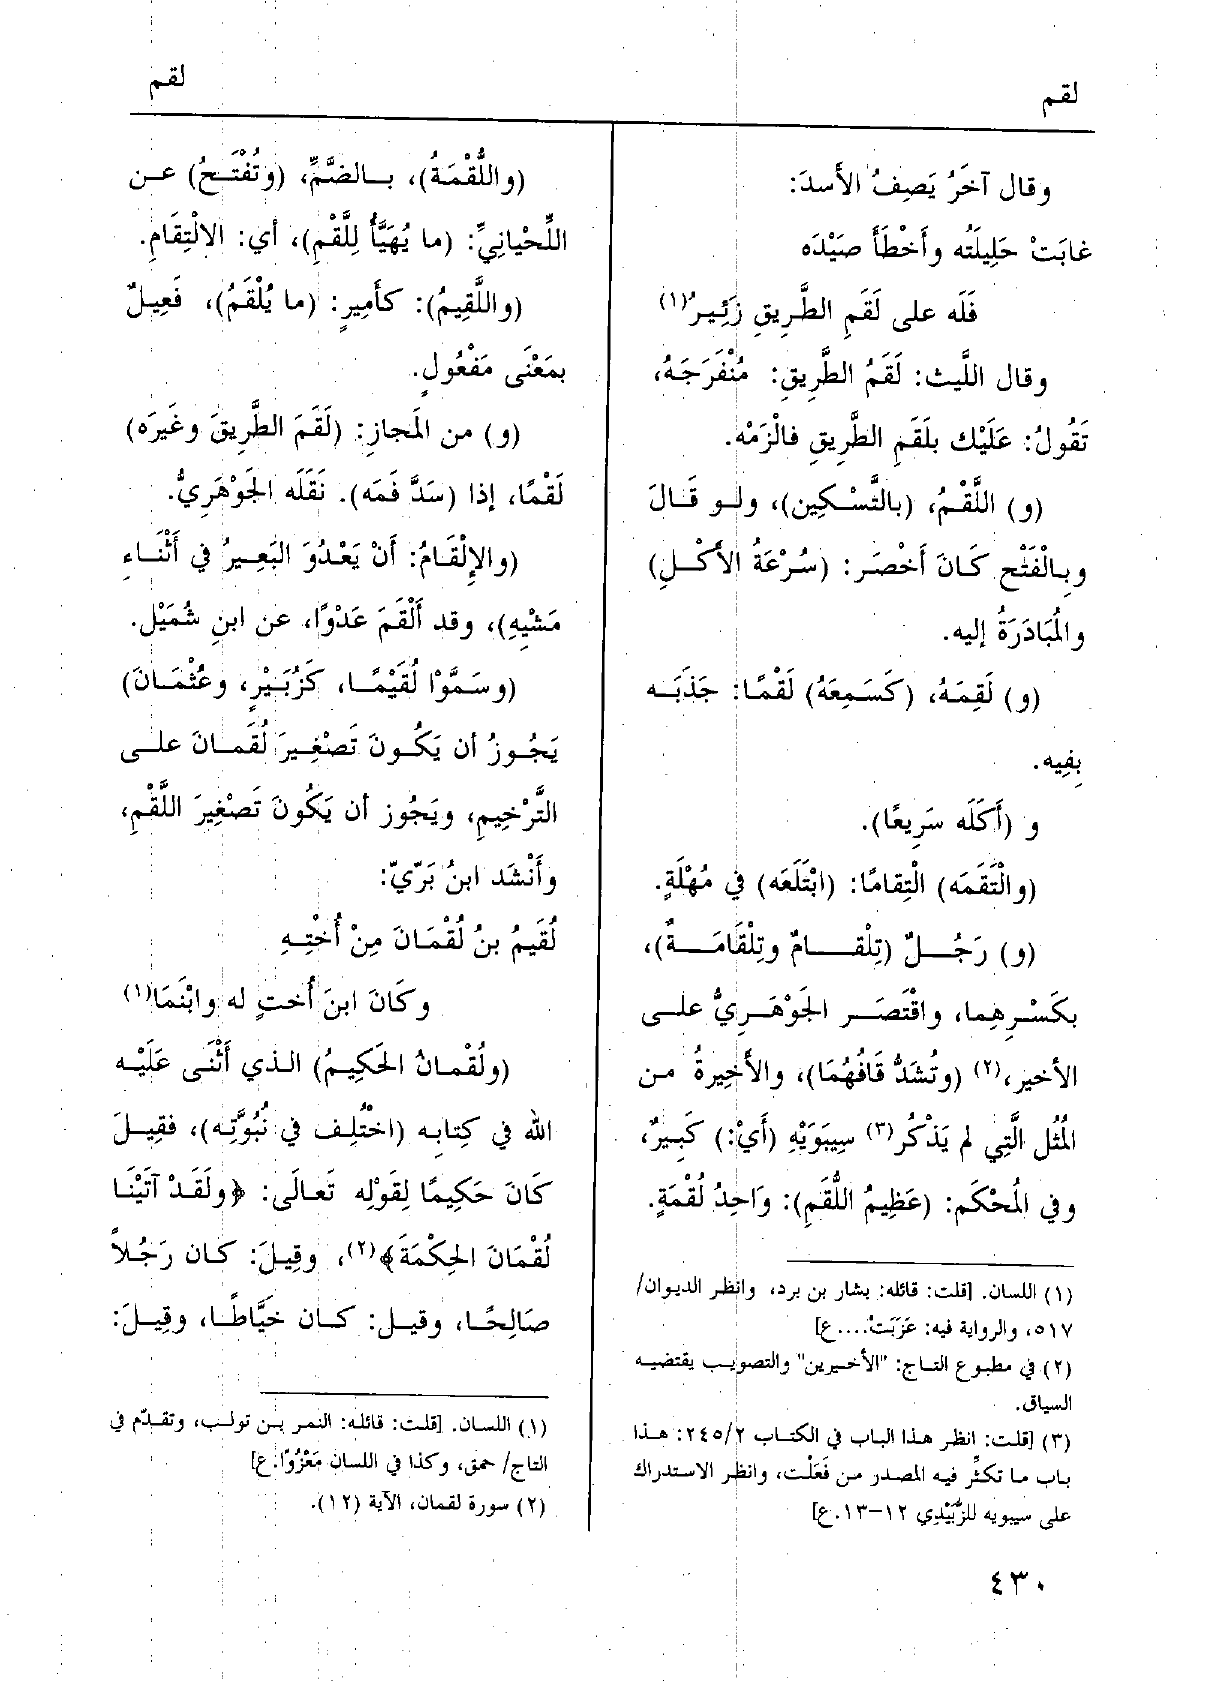 لقم
لقم
وقال آخَرُ يَصِفُ الأسدَ:
غابَتْ حَلِيلَتُه وأَخْطَأَ صَيْدَه
فَلَه على لَقَمِ الطَّرِيقِ زَئِيرُ(١)
وقال اللَّيث: لَقَمُ الطَّرِيقِ: مُنْفَرَجَهُ،
تَقُولُ: عَلَيْك بلَقَمِ الطَّرِيقِ فالْزَمْه.
(و) اللَّقْمُ، (بالتَّسْكِين)، ولو قَالَ
وبِالْفَتْحِ كَانَ أَخْصَر: (سُرْعَةُ الأَكْلِ)
والمُبَادَرَةُ إليه.
(و) لَقِمَهُ، (كَسَمِعَهُ) لَقْمًا: جَذَبَه
بِفِيه.
و (أَكَلَه سَرِيعًا).
(والْتَقَمَه) الْتِقامًا: (ابْتَلَعَه) في مُهْلَةٍ.
(و) رَجُلٌ (تِلْقامٌ وتِلْقَامَةٌ)،
بكَسْرِهِما، واقْتَصَر الجَوْهَرِيُّ على
الأخير،(٢) (وتُشَدُّ قَافُهُمَا)، والأَخِيرةُ من
المُثُل الَّتِي لم يَذْكُر(٣) سِيبَوَيْهِ (أَيْ:) كَبِيرٌ،
وفي المُحْكَم: (عَظِيمُ اللُّقَمِ): وَاحِدُ لُقْمَةٍ.
(١) اللسان. [قلت: قائله: بشار بن برد، وانظر الديوان/
٥١٧، والرواية فيه: عَزَبَتْ....ع]
(٢) في مطبوع التاج: "الأخيرين" والتصويب يقتضيه
السياق.
(٣) [قلت: انظر هذا الباب في الكتاب ٢٤٥/٢: هذا
باب ما تكثِّر فيه المصدر من فَعَلْت، وانظر الاستدراك
على سيبويه للزُّبَيْدِي ١٢-١٣.ع]
(واللُّقْمَةُ)، بالضَّمِّ، (وتُفْتَحُ) عن
اللِّحْيانِيِّ: (ما يُهَيَّأُ لِلَّقْمِ)، أي: الالْتِقَامِ.
(واللَّقِيمُ): كأَمِيرٍ: (ما يُلْقَمُ)، فَعِيلٌ
بمَعْنَى مَفْعُولٍ.
(و) من المَجازِ: (لَقَمَ الطَّرِيقَ وغَيَره)
لَقْمًا، إذا (سَدَّ فَمَه). نَقَلَه الجَوْهَرِيُّ.
(والإلْقَامُ: أَنْ يَعْدُوَ البَعِيرُ في أَثْنَاءِ
مَشْيِهِ)، وقد أَلْقَمَ عَدْوًا، عن ابنِ شُمَيْل.
(وسَمَّوْا لُقَيْمًا، كَزُبَيْرٍ، وعُثْمَانَ)
يَجُوزُ أن يَكُونَ تَصْغِيرَ لُقْمَانَ على
التَّرْخِيمِ، ويَجُوز أن يَكُونَ تَصْغِيرَ اللَّقْمِ،
وأَنْشَد ابنُ بَرِّيّ:
لُقَيمُ بنُ لُقْمَانَ مِنْ أُخْتِهِ
وكَانَ ابنَ أُختٍ له وابْنَمَا(١)
(ولُقْمانُ الحَكِيمُ) الذي أَثْنَى عَلَيْه
الله في كِتابِه (اخْتُلِف في نُبُوَّتِه)، فقِيلَ
كَانَ حَكِيمًا لِقَوْلِه تَعالَى: ﴿ولَقَدْ آتَيْنَا
لُقْمَانَ الحِكْمَةَ﴾(٢)، وقِيلَ: كان رَجُلاً
صَالِحًا، وقيل: كان خَيَّاطًا، وقِيلَ:
(١) اللسان. [قلت: قائله: النمر بن تولب، وتقدّم في
التاج/ حمق، وكذا في اللسان مَعْزُوًا.ع]
(٢) سورة لقمان، الآية (١٢).
٤٣٠